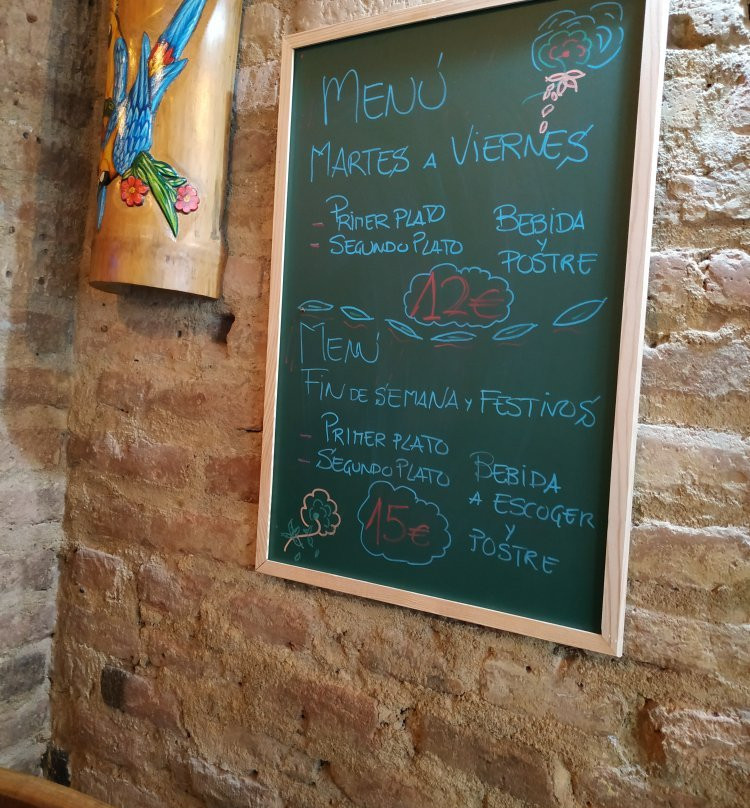 MENÚ
MARTES A VIERNES
- PRIMER PLATO
- SEGUNDO PLATO
BEBIDA
Y
POSTRE
12€
MENÚ
FIN DE SEMANA Y FESTIVOS
- PRIMER PLATO
- SEGUNDO PLATO
BEBIDA
A ESCOGER
Y
POSTRE
15€